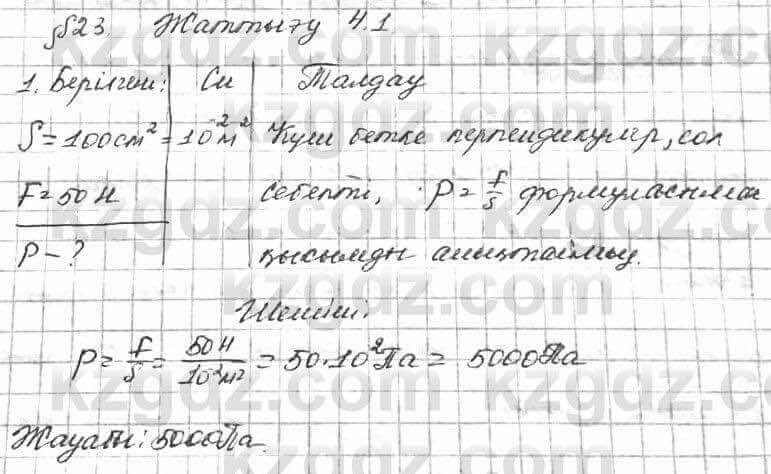 §23. Жаттығу 4.1
1. Берілгені: Си Талдау
S=100см²=10⁻²м² Күш бетке перпендикуляр, сол
F=50Н себепті, P=F/S формуласымен
P-? қысымды анықтаймыз.
Шешімі:
P=F/S=50Н/10⁻²м²=50·10²Па=5000Па
Жауабы: 5000Па.
kzgdz.com